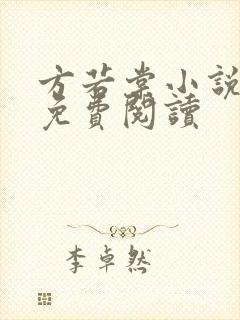 方若棠小說
免費閱讀
李卓然